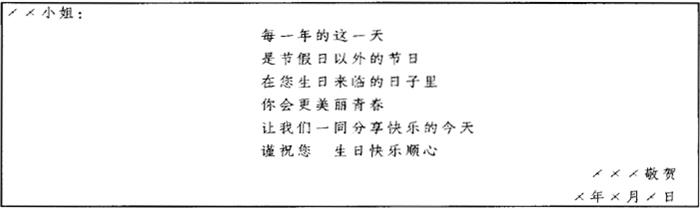 ××小姐：
每一年的这一天
是节假日以外的节日
在您生日来临的日子里
你会更美丽青春
让我们一同分享快乐的今天
谨祝您　生日快乐顺心
×××敬贺
×年×月×日